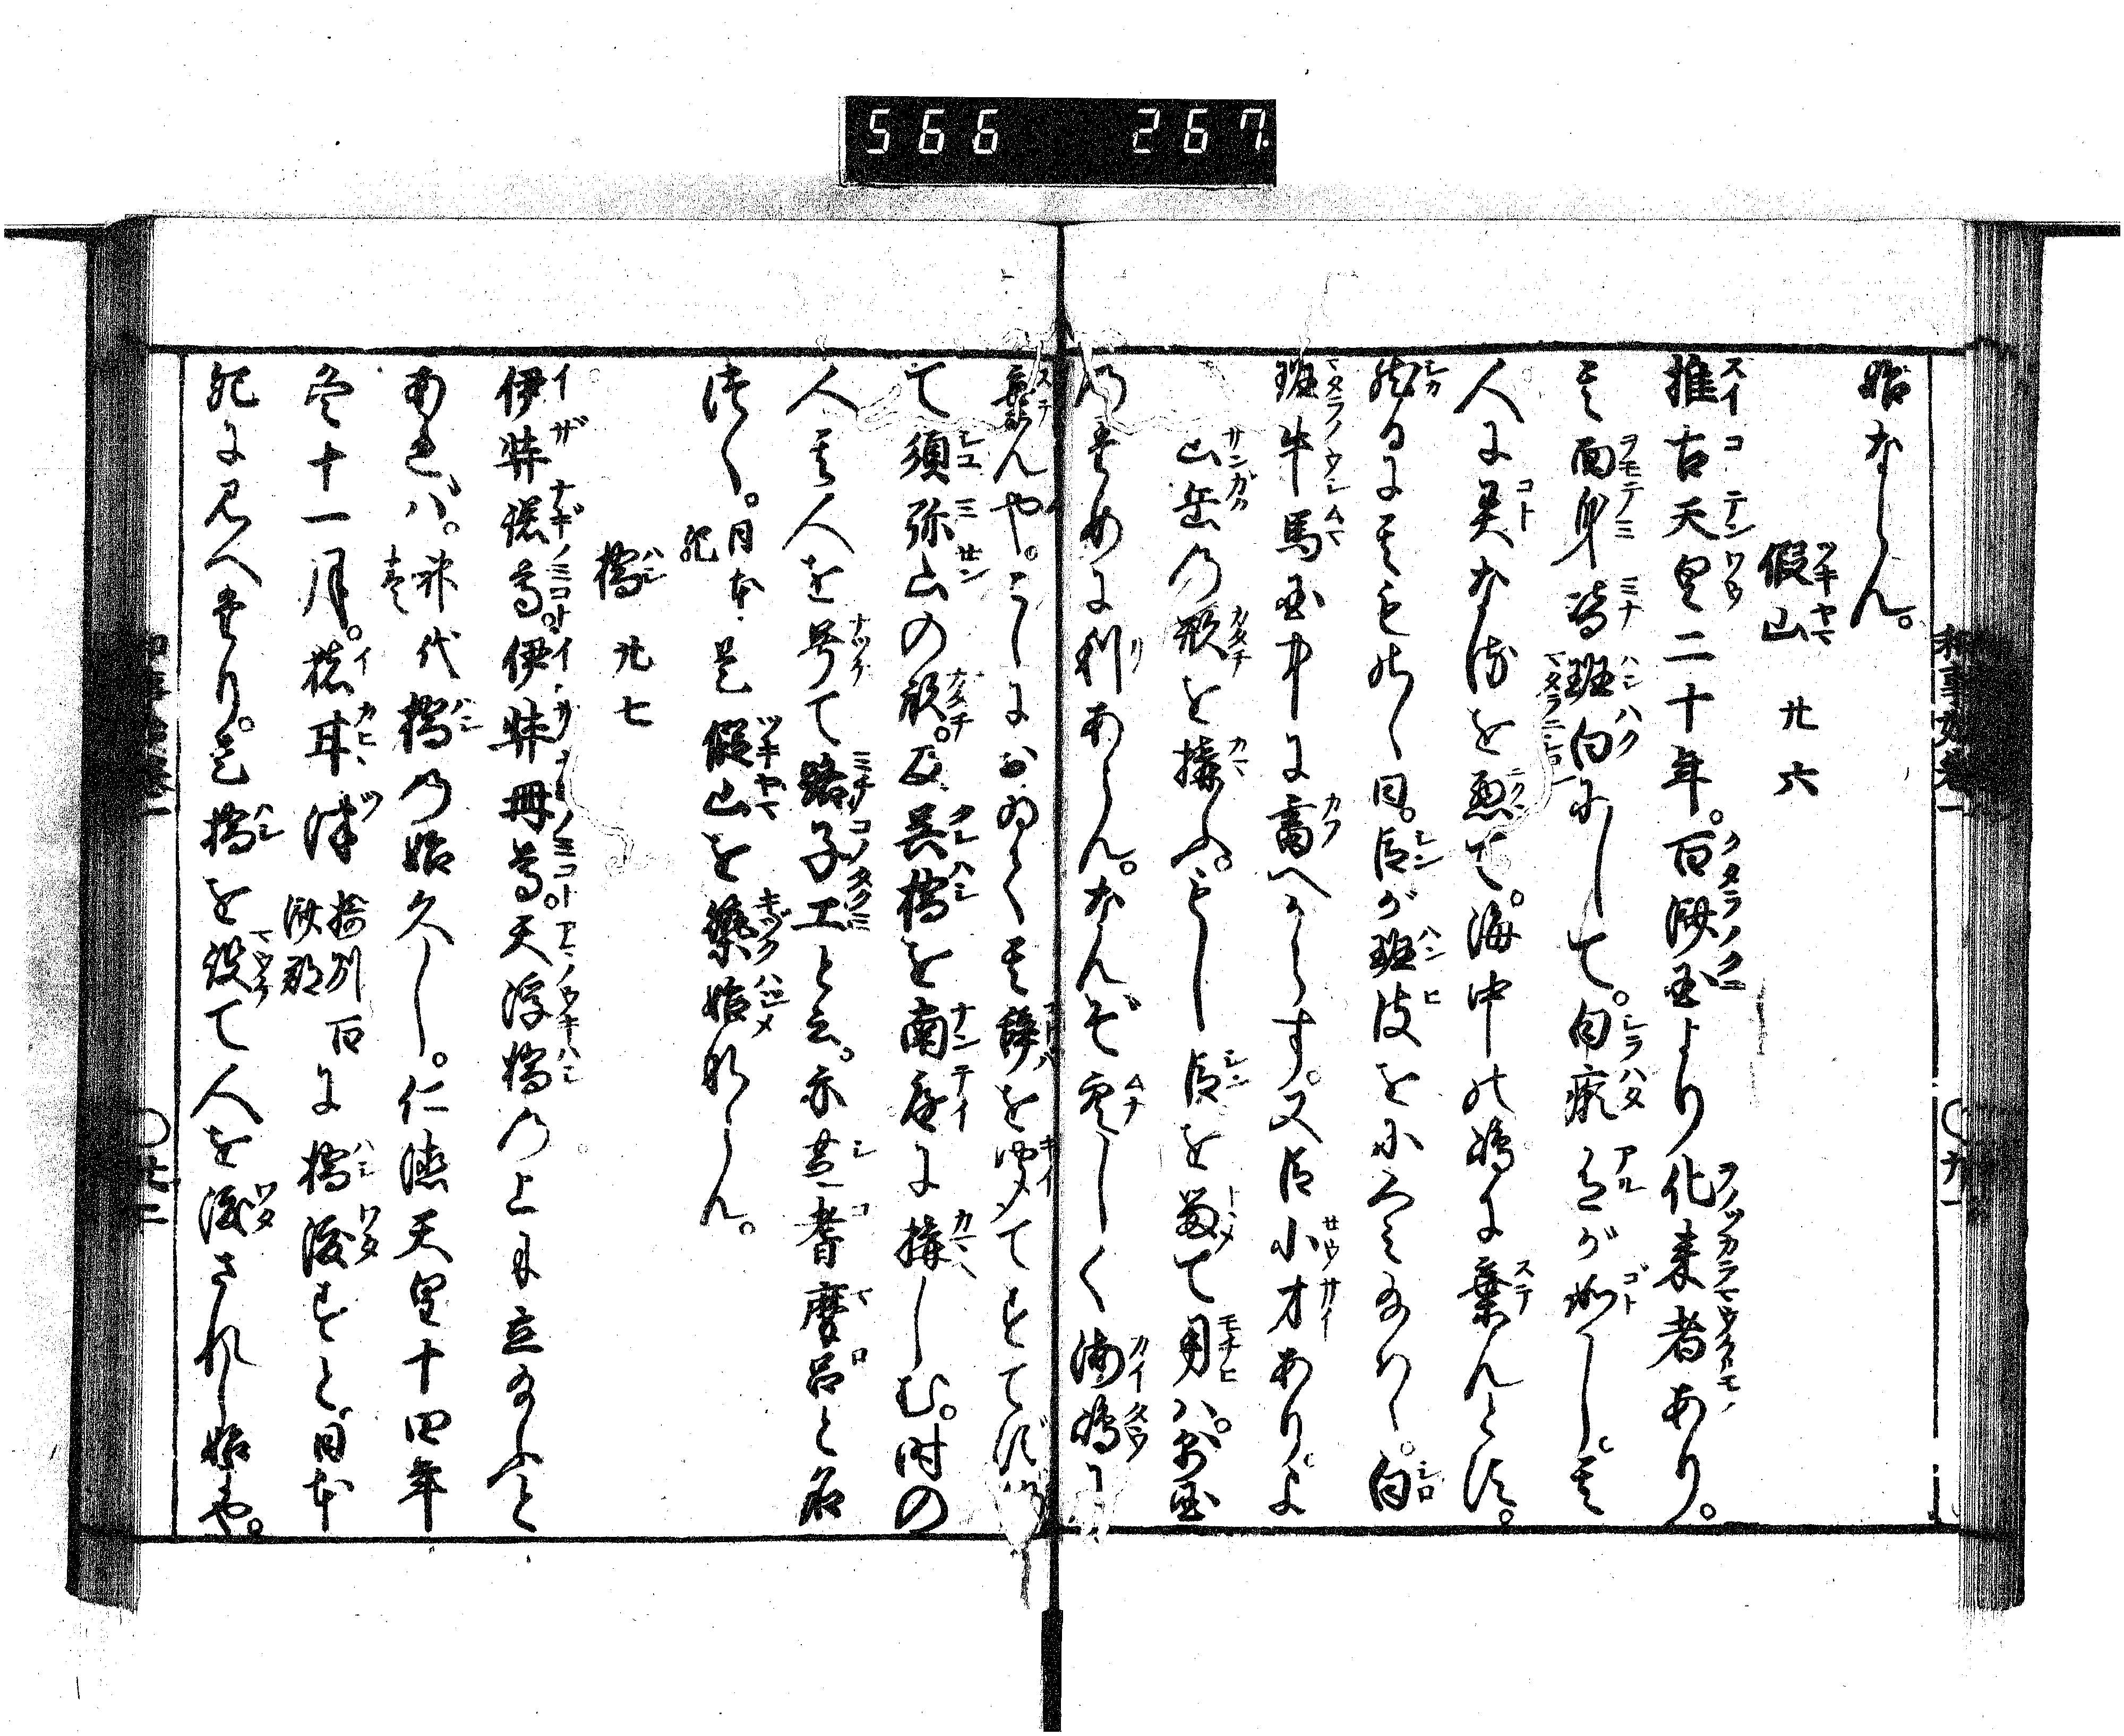 566 267
始ならん。
假山 廿六
推古天皇二十年。百済国より化来者あり。
其面身皆斑白にして。白癩ある が如し。其
人に異なるを悪て。海中の嶋に棄んとす。
然るに其もの 曰。臣が斑皮をにくみ給はゝ。白
斑牛馬国中に畜へからす。又臣小才ありよ
山岳の形を構ふ。もし臣を留て用ハ。則国
のために利あらん。なんぞ空しく海嶋に
棄んや。こゝにおゐて其辞を聞て すてず仍
て須弥山の形。及呉橋を南庭に構しむ。時の
人其人を号て路子工と云。亦芝耆摩呂と名
つく。日本紀 是假山を築始ならん。
橋 廿七
伊弉諾尊。伊弉冊尊。天浮橋の上に立給ふと
あれバ。神代巻 橋の始久し。仁徳天皇十四年
冬十一月。猪耳津 摂州百済郡 に橋渡すと。日本
紀に見へたり。是橋を設て人を渡されし始也。